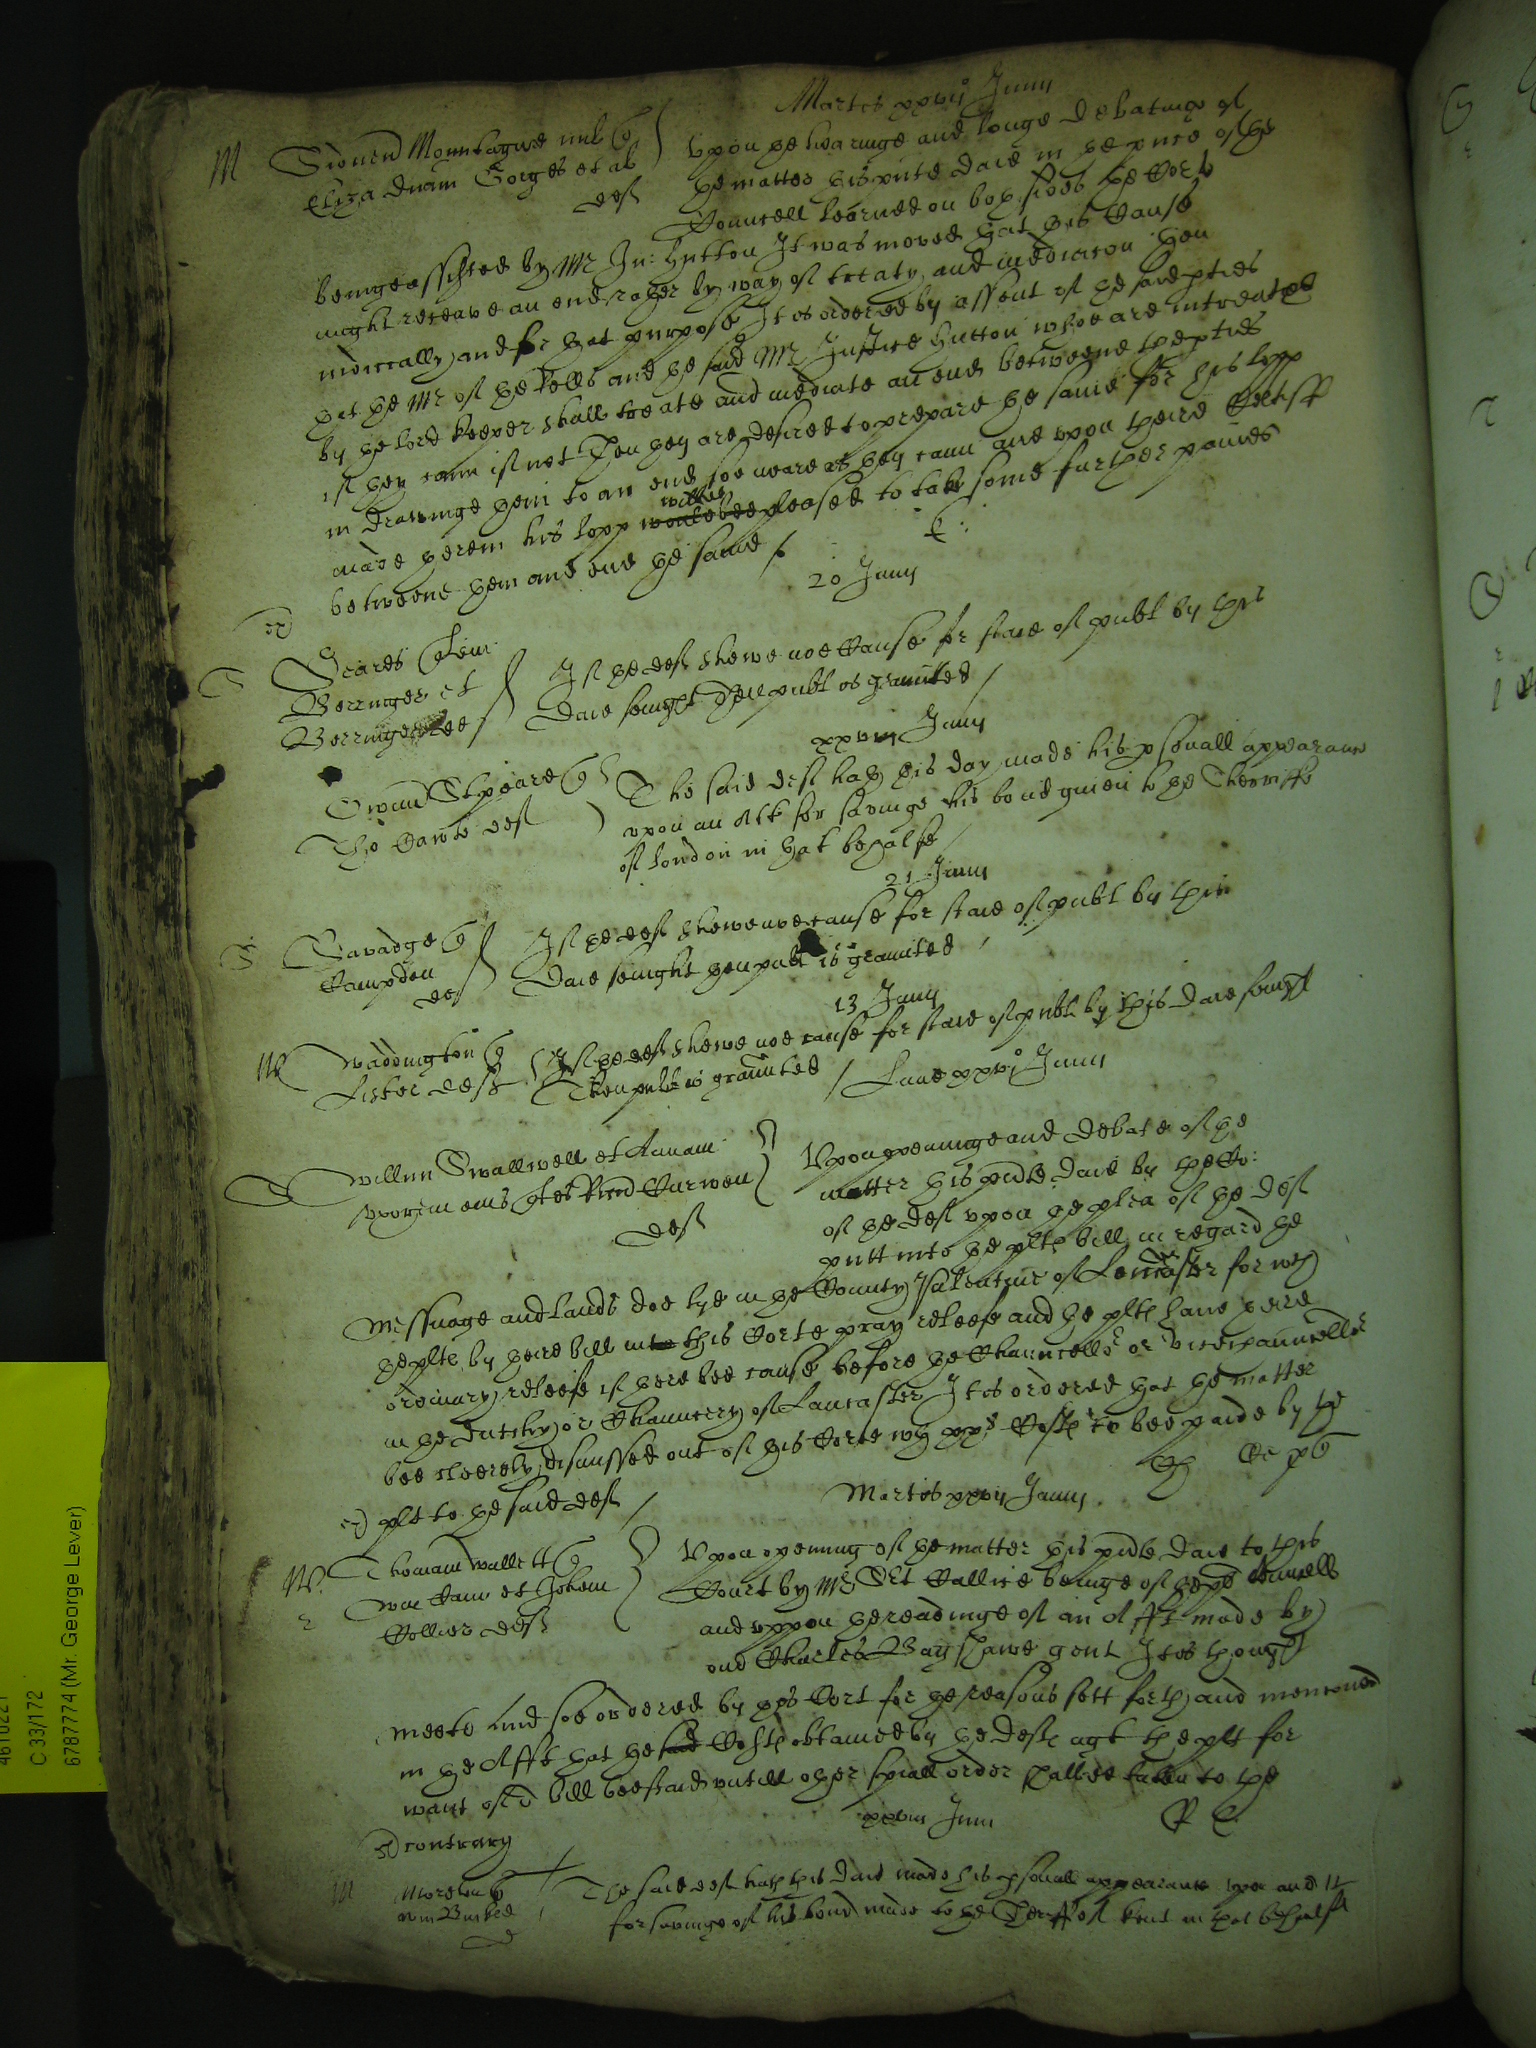 Martis xxvij Junij
M Sidneu Mountague mil quer
Eliza dnam Gorges et al
def
Upon the hearinge and longe debatinge of
the matter this pnte daie in the pnce of the
Councell learned on both sides the Court
beinge assisted by Mr Ju: Hutton It was moved that this Cause
might receave an end rather by way of treaty and mediacon then
iudicially and for that purpose It is ordered by assent of the said pties
that the Mr of the Rolls and the said Mr Justice Hutton whoe are intreated
by the lord keeper shall treate and mediate an end betweene the pties
if they cann if not Then they are desired to prepare the same for his lopp
in drawinge them to an end soe neare as they cann and upon theire Certiff
made therein his lopp wilbe pleased to take some further paines
betweene them and end the same /
20 Junij
Scares quer
Berringer et
Berringer def
If the def shewe noe Cause for staie of publ by this
daie sevnight Then publ is graunted /
xxvij Junij
Tho Cawle def
The said def hath this day made his psonall apparance
upon an Att for savinge his bond given to the Sherriffe
of london in that behalfe /
21 Junij
S Savadge quer
Campden
def
If the def shewe noe cause for staie of publ by this
daie sevnight then publ is graunted /
13 Junij
W Waddington quer
Fisher def
If the def shewe noe cause for staie of publ by this daie sevnight
Then publ is graunted /
Lune xxvj Junij
Willm Swallwell et Annam
uxorem eius quer Ricd Curwen
def
Upon openinge and debate of the
matter this pnte daie by the Co:
of the def upon the plea of the def
putt into the plts bill in regard the
messuage and lands doe lye in the County Pallentine of Lancaster for wch
the plts by theire bill into this Corte pray releefe and the plts have there
ordinary releefe if there bee cause before the Chauncellr or vicechauncellr
in the Dutchy or Chauncery of Lancaster It is ordered that the matter
bee cleerely dismissed out of this Corte wth xxs Costs to bee paide by the
plt to the said def /
Martis xxvij Junij
W Thomam Wallett quer
Wm Cam et Johem
Collier defts
Upon opening of the matter this pnte daie to this
Court by Mr Sct Callice beinge of the pl Councell
and uppon the readinge of an Afft made by
one Charles Bagshawe gent It is thought
meete and soe ordered by this Cort for the reasons sett forth and mencioned
in the Afft that the said Costs obtained by the defts agt the plt for
want of a bill bee staid untill other speciall order shalbee taken to the
contrary
xxvij Junij
M Moreton quer
Wm Burbed
d
The said def hath this daie made his psonall appearance upon an Att
for savinge of his bond made to the Sherriff of Kent in that behalfe
C 33/172
6787774 (Mr. George Lever)